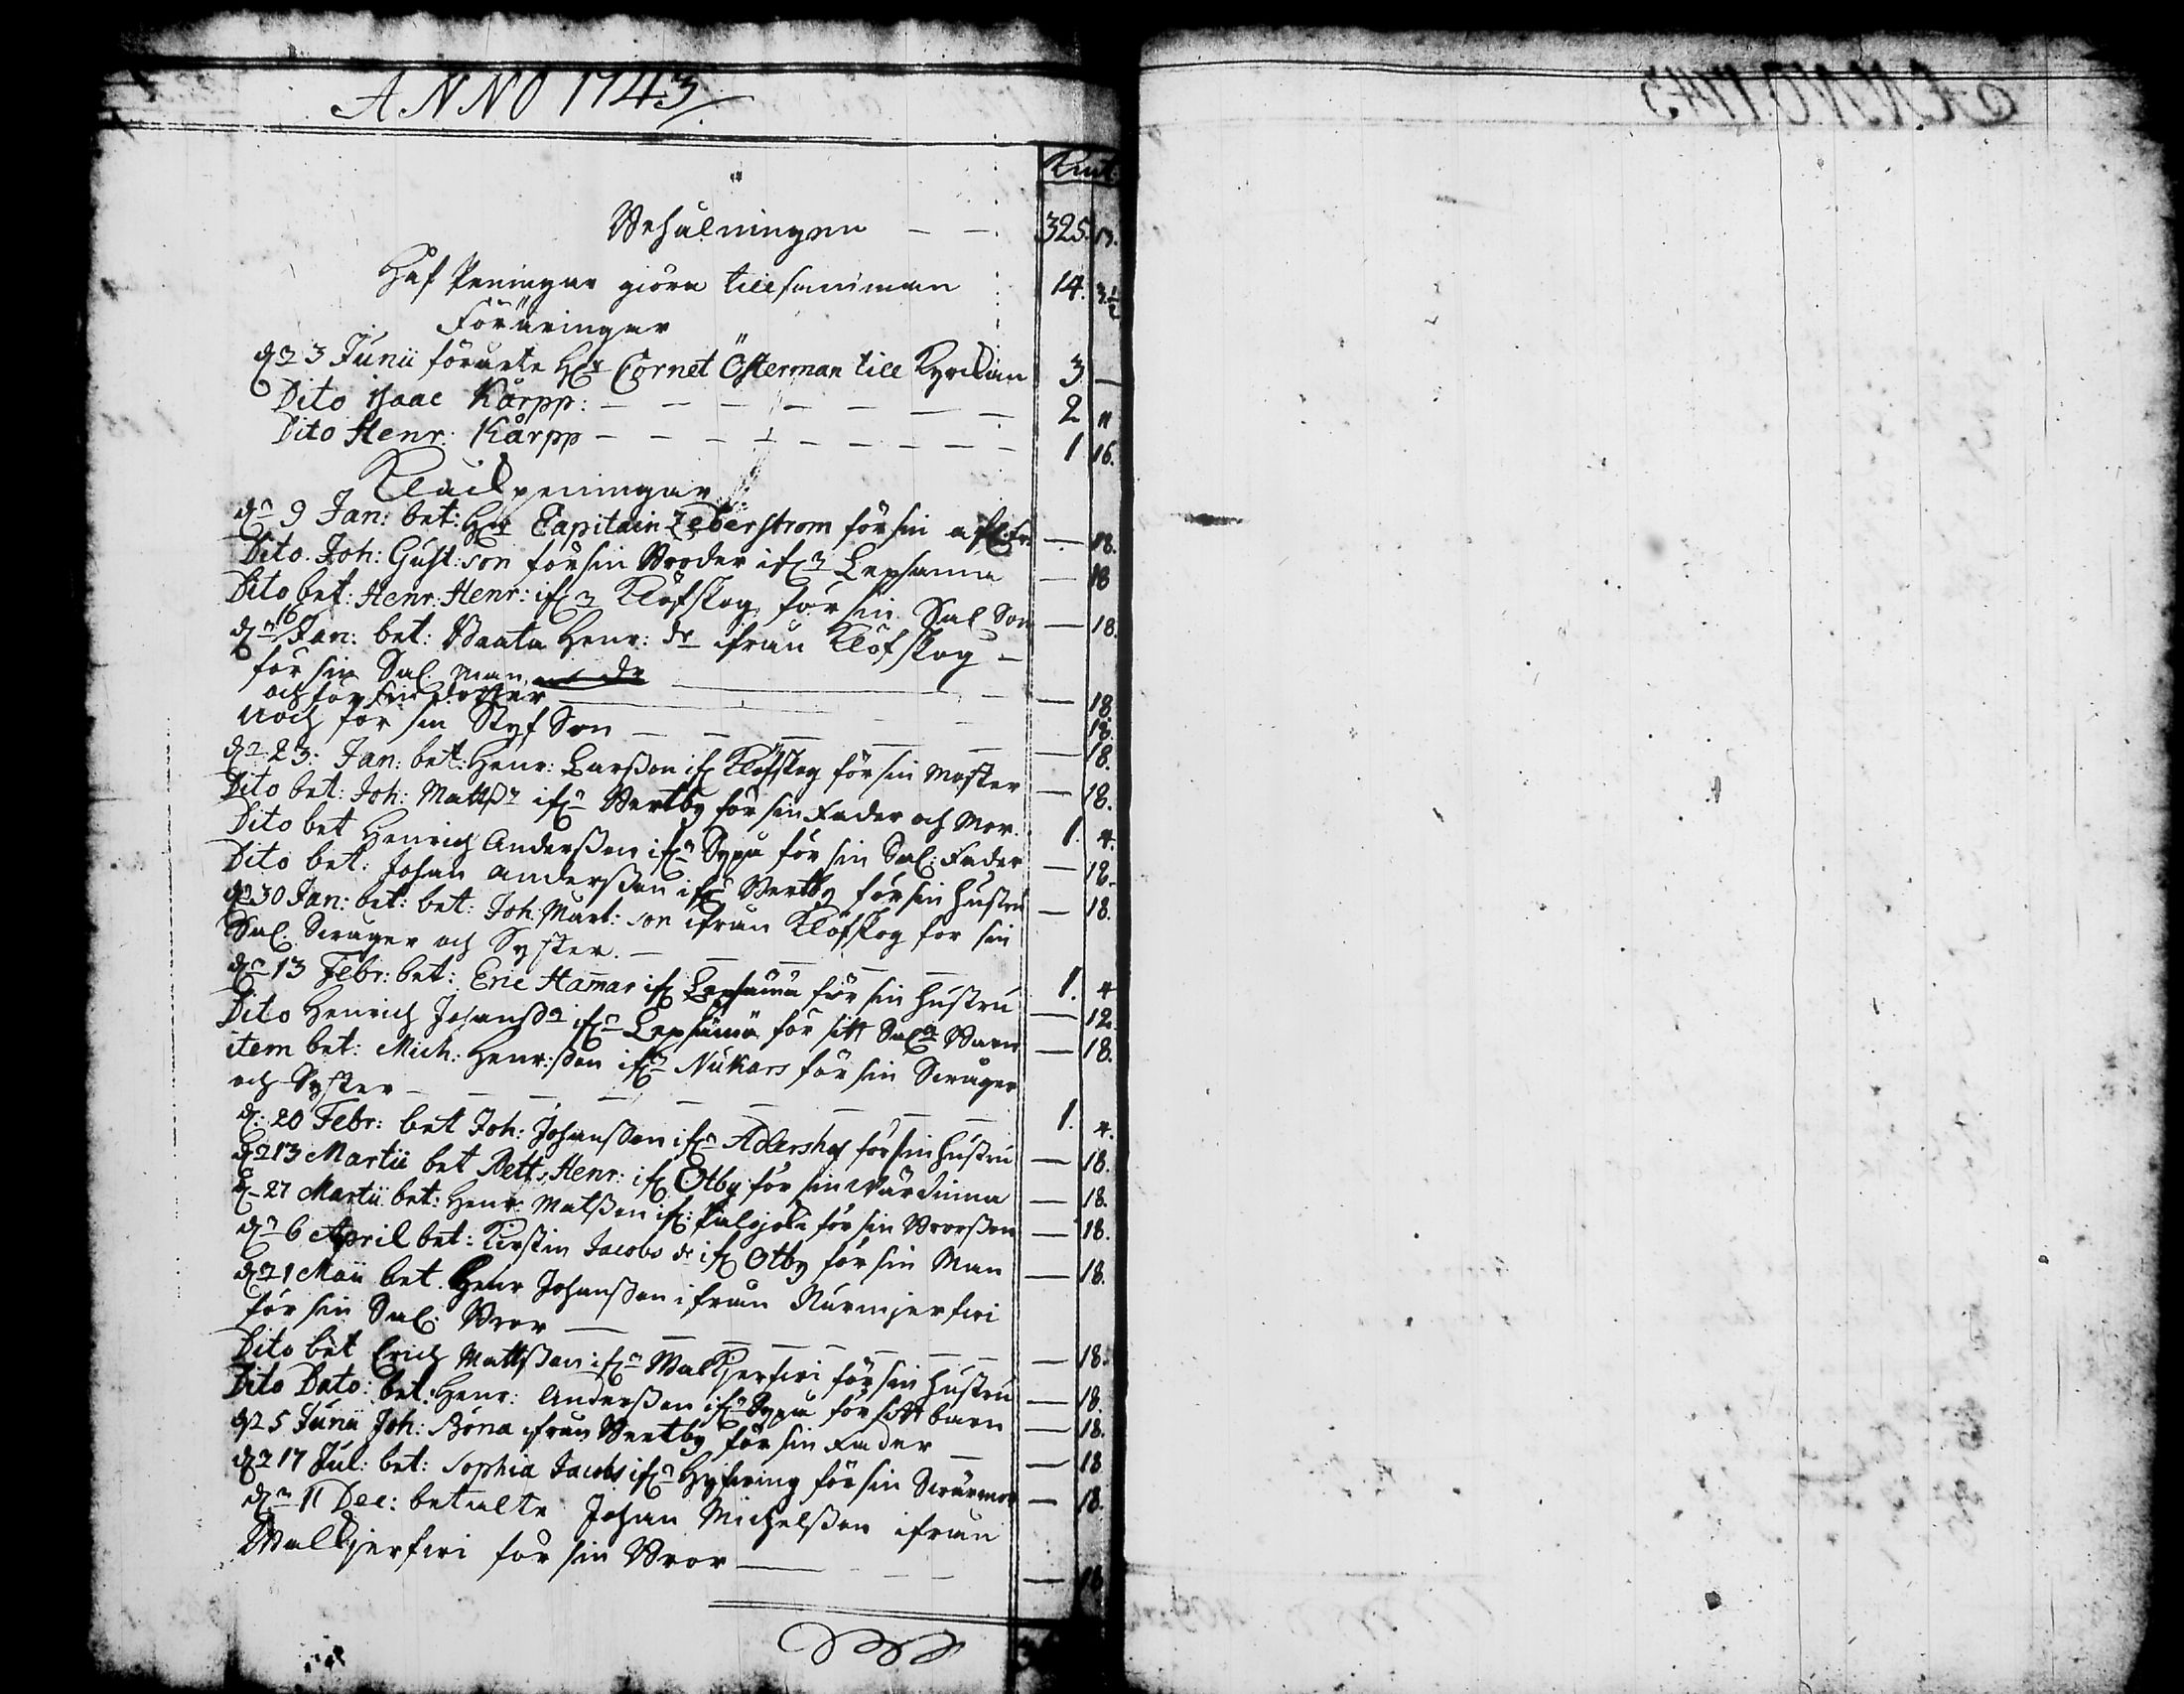 ANNO 1743
Kmt:
Behålningen — — 325. 13.
Håf Peningar giöra tillsamman 14. 3½
Föräringar
dn 3 Junii förärte Hr Cornet Österman till Kyrckian 3 —
Dito Isaac Kårpp: — — — — — — — 2 11
Dito Henr: Kårpp — — — — — — — — 1 16.
Klåckpeningar
dn 9 Jan: bet: Hr Capitain Zederstrom för sin — 18.
Dito. Joh: Gust: son för sin Broder ifrn Lepsama — 18
Dito bet: Henr: Henr: ifrn Klöfskog för sin Sal Son — 18.
dn 16 Jan: bet: Beata Henr: dr ifrån Klöfskog —
för sin Sal. Man — 18.
och för sin dotter — 18.
noch för sin Styf Son — — — — — — 18.
dn 23: Jan: bet: Henr: Larsson if Klöfskog för sin Moster — 18.
Dito bet: Joh: Mattsn ifrn Bertby för sin Fader och Mor. 1. 4.
Dito bet Henrich Andersson ifrn Sypå för sin Sal: Fader — 18.
Dito bet: Johan Andersson ifrn Bertby för sin Hustru — 18.
dn 30 Jan: bet: bet: Joh: Mart: son ifrån Klöfskog för sin
Sal. Swåger och Syster. — — — — 1. 4
dn 13 Febr: bet: Eric Hamar if Lepsämä för sin Hustru — 12.
Dito Henrich Johanssn ifrn Lepsämä för sitt Sala Barn — 18.
item bet: Mich: Henr:sson ifrn Nukars för sin Swåger
och Syster — — — — — — — — 1. 4.
d: 20 Febr: bet Joh: Johansson ifrn Adlershof för sin Hustru — 18.
dn 13 Martii bet Betts Henr: if Otby för sin Wärdinna — 18.
d 27 Martii bet: Henr: Matsson if: Palojoki för sin Brorsson — 18.
dn 6 April bet: Kirstin Jacobs dr if Otby för sin Man — 18.
dn 21 Maii bet. Henr Johansson ifrån Nurmijerfwi
för sin Sal. Bror — — — — — — — 18.
Dito bet Erich Mattsson ifrn Walkjerfwi för sin Hustru — 18.
Dito Dato: bet: Henr: Andersson ifrn Sypå för sitt barn — 18.
dn 5 Junii Joh: Böna ifrån Bertby för sin Fader — — 18
dn 17 Jul: bet: Sophia Jacobs ifrn Hyfwing för sin Swärmor — 18.
dn 11 Dec: betalte Johan Michelsson ifrån
Walkjerfwi för sin Bror — — — — 18